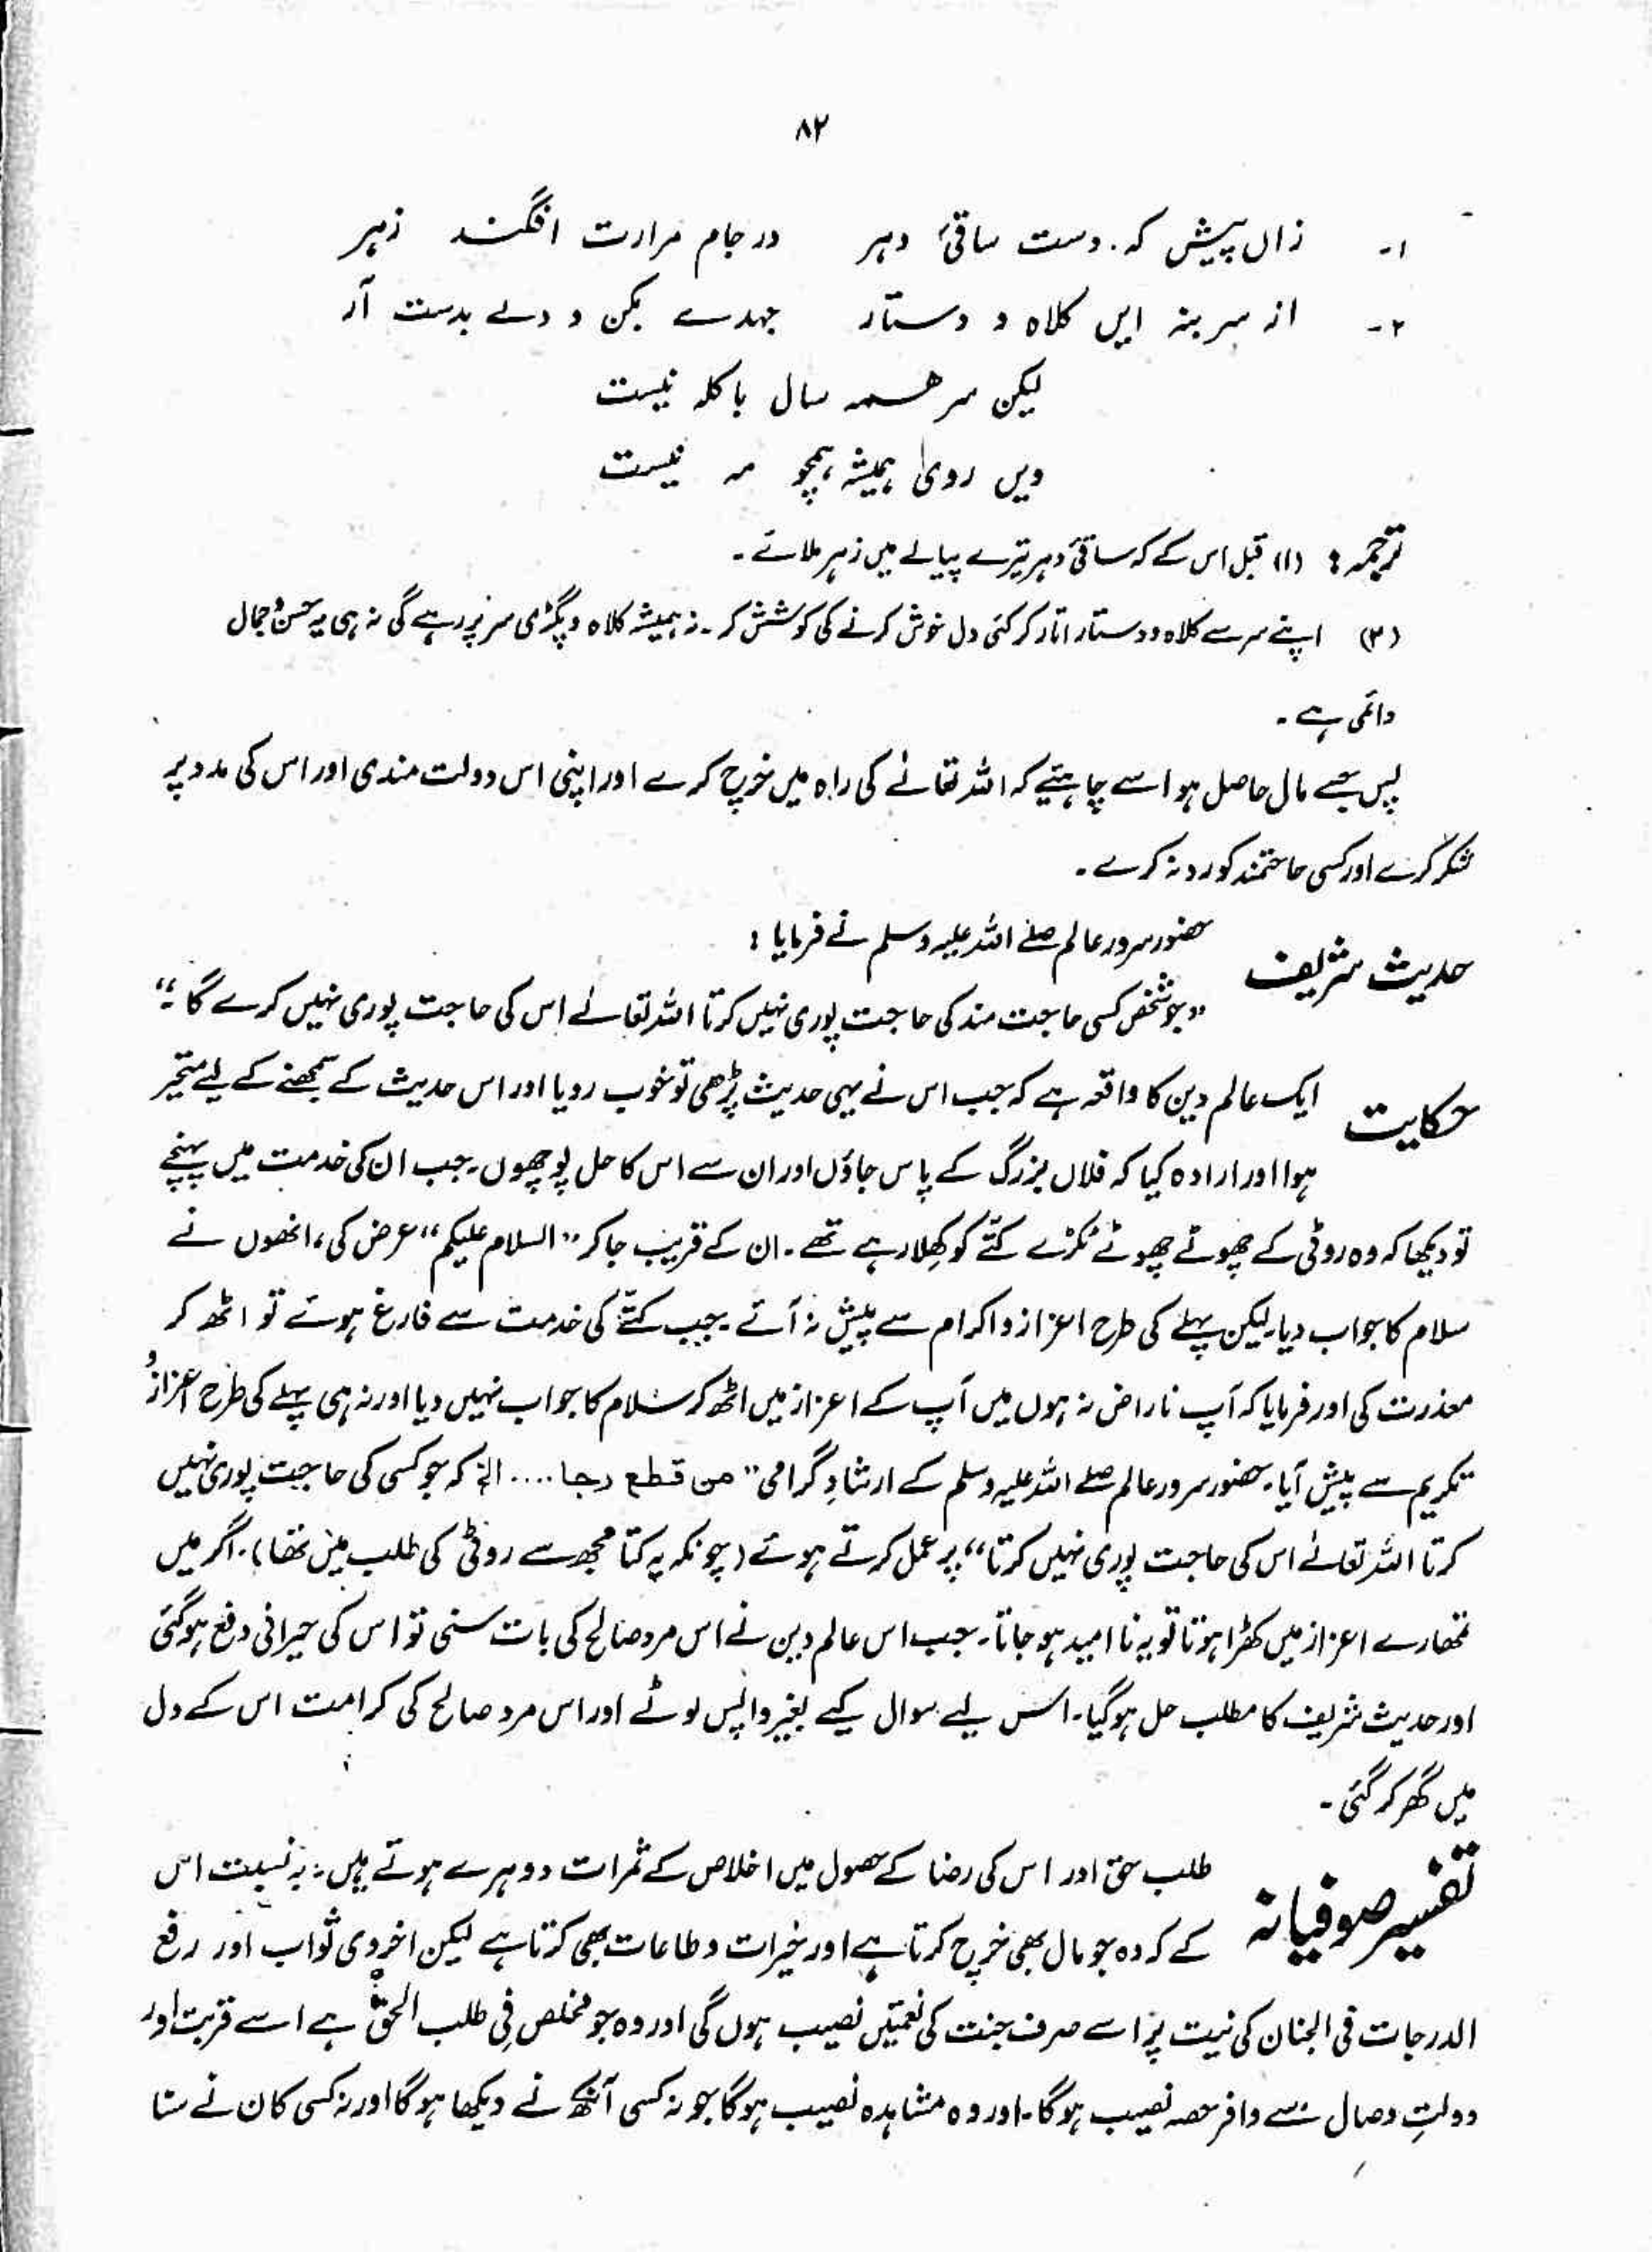 ۸۲
۱۔ زاں پیش کہ دست ساقیٔ دہر در جام مرارت افگند زہر
۲۔ از سر بنہ ایں کلاہ و دستار جہدے بکن و دلے بدست آر
لیکن سر ھمہ سال با کلہ نیست
ویں روی ہمیشہ ہمچو مہ نیست
ترجمہ : (۱) قبل اس کے کہ ساقیٔ دہر تیرے پیالے میں زہر ملائے۔
(۲) اپنے سر سے کلاہ و دستار اتار کر کئی دل خوش کرنے کی کوشش کر۔ نہ ہمیشہ کلاہ و پگڑی سر پر رہے گی نہ ہی یہ حسن و جمال
دائمی ہے۔
پس جسے مال حاصل ہو اسے چاہئیے کہ اللہ تعالےٰ کی راہ میں خرچ کرے اور اپنی اس دولت مندی اور اس کی مدد پر
شکر کرے اور کسی حاجتمند کو رد نہ کرے۔
حدیث شریف حضور سرور عالم صلے اللہ علیہ وسلم نے فرمایا :
”جو شخص کسی حاجت مند کی حاجت پوری نہیں کرتا اللہ تعالےٰ اس کی حاجت پوری نہیں کرے گا۔“
حکایت ایک عالم دین کا واقعہ ہے کہ جب اس نے یہی حدیث پڑھی تو خوب رویا اور اس حدیث کے سمجھنے کے لیے متحیر
ہوا اور ارادہ کیا کہ فلاں بزرگ کے پاس جاؤں اور ان سے اس کا حل پوچھوں۔ جب ان کی خدمت میں پہنچے
تو دیکھا کہ وہ روٹی کے چھوٹے چھوٹے ٹکڑے کتّے کو کھِلا رہے تھے۔ ان کے قریب جا کر ”السلام علیکم“ عرض کی، انھوں نے
سلام کا جواب دیا۔ لیکن پہلے کی طرح اعزاز و اکرام سے پیش نہ آئے۔ جب کتّے کی خدمت سے فارغ ہوئے تو اٹھ کر
معذرت کی اور فرمایا کہ آپ ناراض نہ ہوں میں آپ کے اعزاز میں اٹھ کر سلام کا جواب نہیں دیا اور نہ ہی پہلے کی طرح اعزاز و
تکریم سے پیش آیا۔ حضور سرور عالم صلے اللہ علیہ وسلم کے ارشادِ گرامی ”من قطع رجا .... الخ کہ جو کسی کی حاجت پوری نہیں
کرتا اللہ تعالےٰ اس کی حاجت پوری نہیں کرتا“ پر عمل کرتے ہوئے (چونکہ یہ کتا مجھ سے روٹی کی طلب میں تھا)۔ اگر میں
تمھارے اعزاز میں کھڑا ہوتا تو یہ نا امید ہو جاتا۔ جب اس عالم دین نے اس مرد صالح کی بات سنی تو اس کی حیرانی دفع ہو گئی
اور حدیث شریف کا مطلب حل ہو گیا۔ اس لیے سوال کیے بغیر واپس لوٹے اور اس مرد صالح کی کرامت اس کے دل
میں گھر کر گئی۔
تفسیر صوفیانہ طلب حق اور اس کی رضا کے حصول میں اخلاص کے ثمرات دوہرے ہوتے ہیں۔ بہ نسبت اس
کے کہ وہ جو مال بھی خرچ کرتا ہے اور خیرات و طاعات بھی کرتا ہے لیکن اخروی ثواب اور رفع
الدرجات فی الجنان کی نیت پر اسے صرف جنت کی نعمتیں نصیب ہوں گی اور وہ جو مخلص فِی طلب الحق ہے اسے قربت اور
دولتِ وصال سے وافر حصہ نصیب ہو گا۔ اور وہ مشاہدہ نصیب ہو گا جو نہ کسی آنکھ نے دیکھا ہو گا اور نہ کسی کان نے سنا